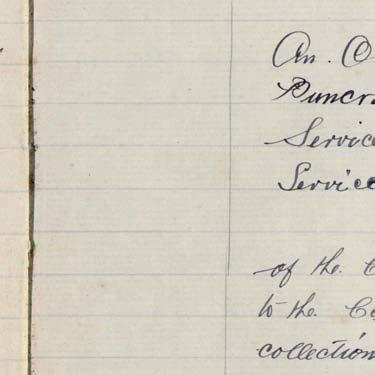 An. O
Puncr
Service
Service
of the C
to the Co
collection